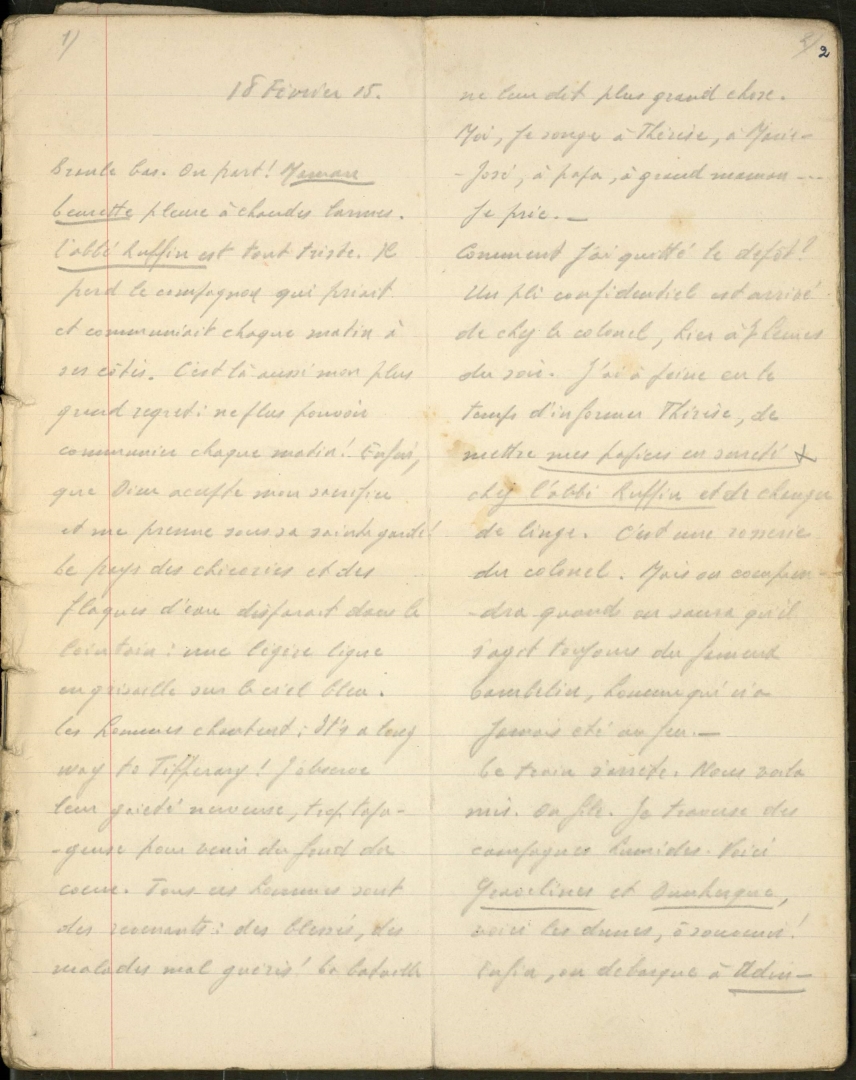 1)
18 Février 15.
Branle bas. On part! Maman
Beurette pleure à chaudes larmes.
l'abbé Ruffin est tout triste. Il
perd le compagnon qui priait
et communiait chaque matin à
ses côtés. C'est là aussi mon plus
grand regret: ne plus pouvoir
communier chaque matin! Enfin,
que Dieu accepte mon sacrifice
et me prenne sous sa sainte garde!
Le pays des chicories et des
flaques d'eau disparait dans le
lointain: une légère ligne
en grisaille sur le ciel bleu.
Les hommes chantent: It's a long
way to Tipperary! J'observe
leur gaieté nerveuse, trop tapa-
-geuse pour venir du fond du
coeur. Tous ces hommes sont
des revenants: des blessés, des
malades mal guéris! La bataille
2
ne leur dit plus grand chose.
Moi, je songe à Thérèse, à Marie-
-José, à papa, à grand maman ---
Je prie. —
Comment j'ai quitté le dépôt?
Un pli confidentiel est arrivé
de chez le colonel, hier à 7 heures
du soir. J'ai à peine eu le
temps d'informer Thérèse, de
mettre mes papiers en sureté
chez l'abbé Ruffin et de changer
de linge. C'est une rosserie
du colonel. Mais on compren-
-dra quand on saura qu'il
s'agit toujours du fameux
homme qui n'a
jamais été au feu. —
Le train s'arrête. Nous voilà
mis. On file. Je traverse des
campagnes humides. Voici
Gravelines et Dunkerque,
voici les dunes, ô souvenir!
Enfin, on débarque à Adin-